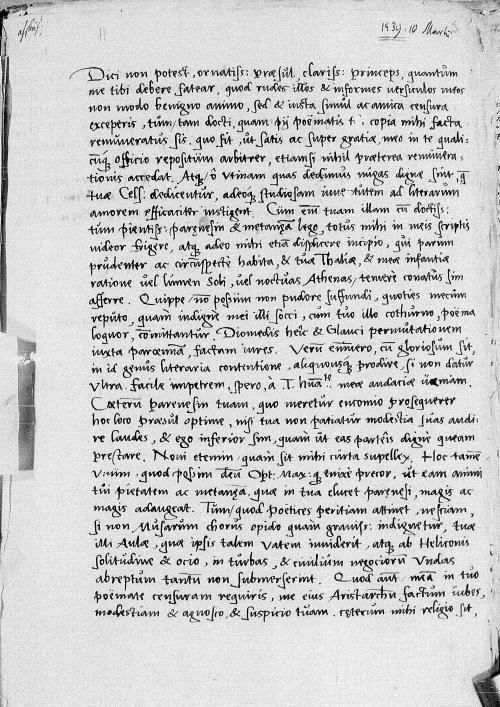 1539. 10 Martii
Dici non potest, ornatiss: præsul, clariss: princeps, quantum
me tibi debere fatear, quod rudes illos & informes versiculos meos
non modo benigno animo, sed & iusta simul ac amica censura
exceperis, tum tam docti, quam pij poëmatis t: copia mihi facta
remuneratus sis. quo fit, ut satis ac super gratiæ meo in te quali-
cunq officio repositum arbitrer, etiamsi nihil præterea remunera-
tionis accedat. Atq ô utinam quas dedimus nugas dignæ sint, q
tuæ Cels: dedicentur, adeoq studiosam iuventutem ad literarum
amorem efficaciter instigent. Cum enim tuam illam cum doctiss:
tum pientiss: parænesin & metanœa lego, totus mihi in meis scriptis
videor frigere, atq adeo mihi etiã displicere incipio, qui parum
prudenter ac circumspecte habita, & tuæ Thaliæ, & meæ infantiæ
ratione vel lumen Soli, vel noctuas Athenas temere conatus sim
afferre. Quippe non possum non pudore suffundi, quoties mecum
reputo, quam indigne mei illi socci, cum tuo illo cothurno, poëma
loquor, committantur. Diomedis heic & Glauci permutationem
iuxta parœmiam, factam iures. Verum enimvero, cum gloriosum sit
in id genus literaria contentione, aliquousq prodire, si non datur
ultra. facile impetrem, spero, à T. humate meæ audaciæ veniam.
Cæterum parænesin tuam, quo meretur encomio prosequerer
hoc loco præsul optime, nisi tua non patiatur modestia suas audi-
re laudes, & ego inferior sim, quam ut eas parteis digne queam
præstare. Novi etenim quam sit mihi curta supellex. Hoc tamẽ
unum, quod possim deum Opt. Max: q enixe precor, ut eam animi
tui pietatem ac metanœa, quæ in tua elucet parænesi, magis ac
magis adaugeat. Tum quod poëtices peritiam attinet, nesciam,
si non Musarum chorus opido quam graviss: indignetur, tuæ
illi Aulæ, quæ ipsis talem vatem inviderit, atq ab Heliconis
solitudine & ocio, in turbas, & civilium negociorum undas
abreptum tantum non submerserint. Quod aut meã in tuo
poëmate censuram requiris, me eius Aristarchum factum iubes,
modestiam & agnosco, & suspicio tuam. cæterum mihi religio sit,